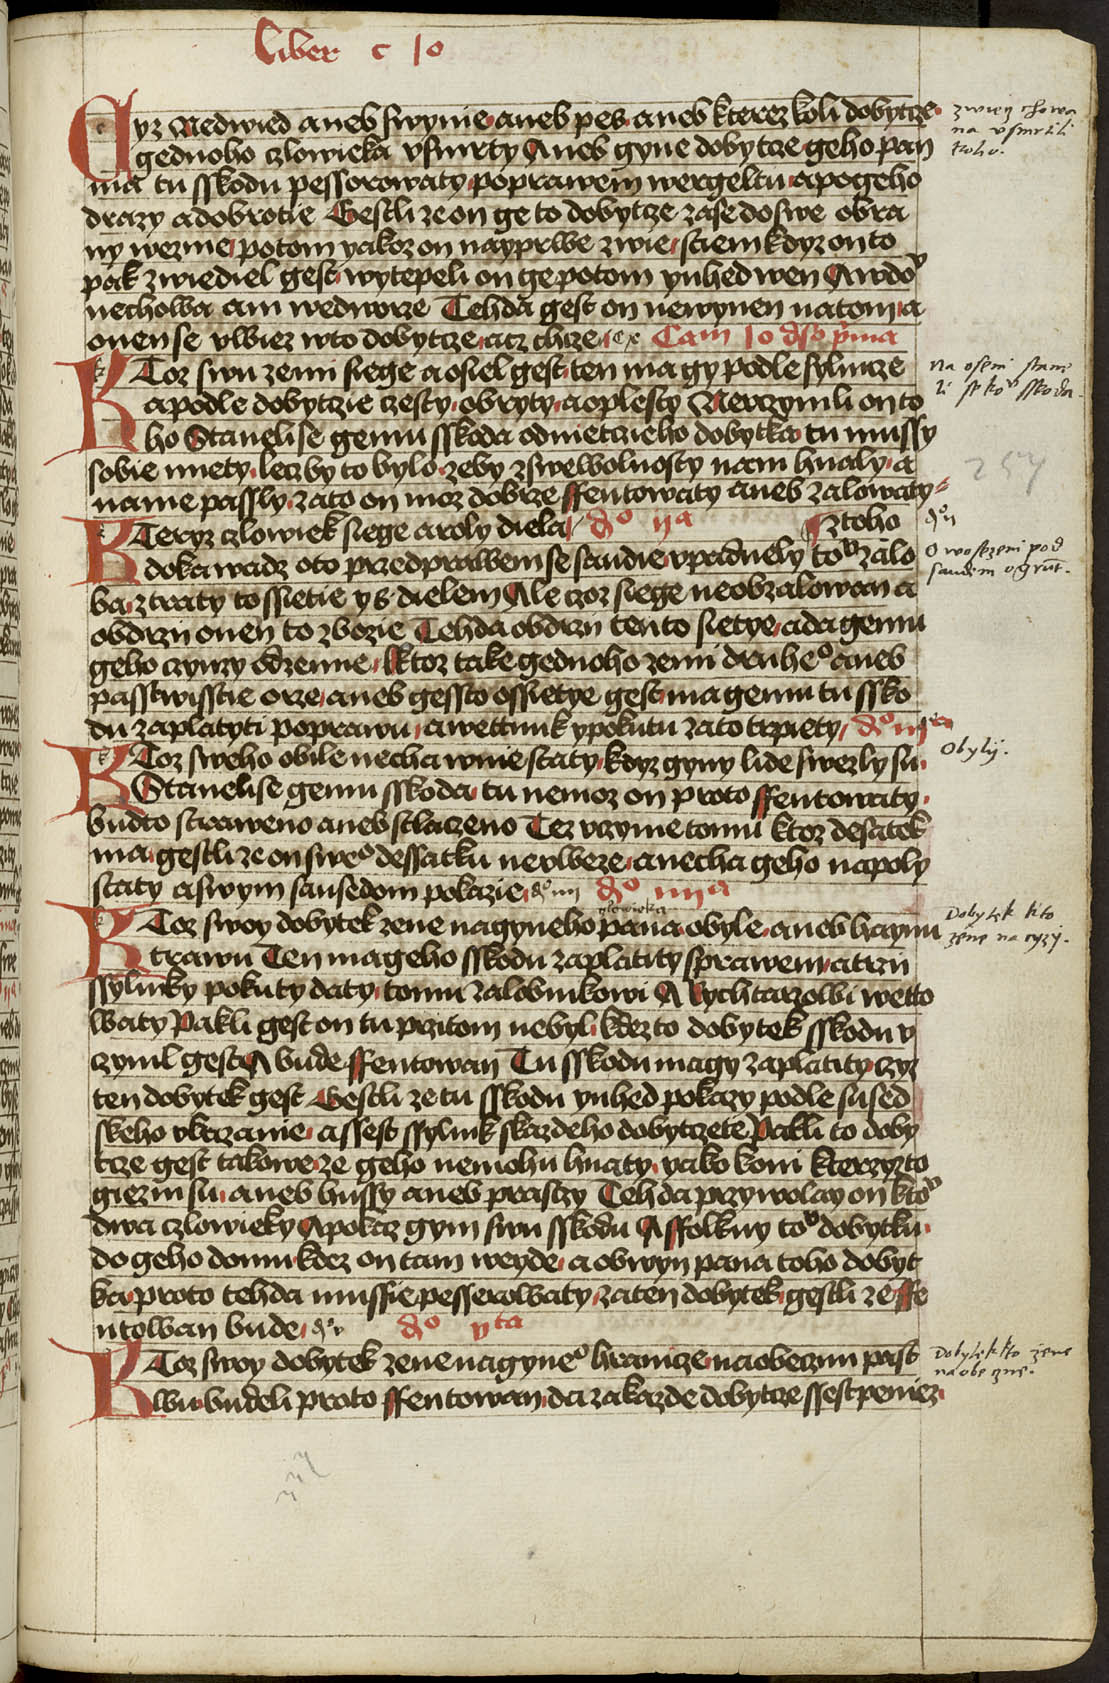 Liber c 10
Cyz Nedwied aneb swynie aneb pes aneb kterez koli dobytcze
gednoho czlowieka vsmrty Aneb gyne dobytcze geho pan
ma tu sskodu pesserowaty poprawem wergeltu apogeho
drazy adobrotie Gestli ze on ge to dobytcze zase doswe obra
ny wezme potom yakoz on nayprwe zwie sciem kdyz on to
pak zwiediel gest wytepeli on ge potom ynhed wen Awdoᵒ
nechowa am wedworze Tehda gest on newynen natom a
onen se vwiez wto dobytcze acz chcze Cam 10 dſo prima
KToz swu zemi siege aosiel gest ten ma gy podle sylnicze
apodle dobytczie czesty obryty aoplesty Nevczynili on to
ho Stanelise gemu sskoda odnietczieho dobytka tu mussy
sobie miety leczby to bylo zeby zswewolnosty nam hnaly a
name passly zato on moz dobrze ffentowaty aneb zalowaty
KTeryz czlowiek siege a roly diela dᵒ ijᵃ ztoho
dokawadz oto przed prawem se saudie vpadnely toᵒ zalo
ba ztraty to ssietie ys dielem Ale czoz siege neobzalowan a
obdrzi onen to zbozie Tehda obdrzi tento sietye ada gemu
geho czynzy odzemie Ktoz take gednoho zemi druheᵒ aneb
passtwisstie orze aneb gessto ossietye gest ma gemu tu ssko
du zaplatyti poprawu awettunk ypokutu zato trpiety dᵒ iijᵃ
KToz sweho obile necha wnie staty kdyz gyny lide swezly su
Stanelise gemu sskoda tu nemoz on proto ffentowaty
budto straweno aneb stlaczeno Tez vczyme tomu ktoz desatek
ma gestli ze on sweᵒ dessatku nevweze anecha geho napoly
staty aswym sausedom pokazie dᵒ iiij dᵒ iiijᵃ
czlowieka
KToz swoy dobytek zene nagyneho pana obyle aneb haynu
trawu Ten ma geho sskodu zaplatity sprawem atrzi
ssylinky pokuty daty tomu zalobnikowi A Rychtarzowi wetto
waty Pakli gest on tu przitom nebyl kdez to dobytek sskodu v
czynil gest A bude ffentowan Tu sskodu magy zaplatity czyz
ten dobytek gest Gestli ze tu sskodu ynhed pokazy podle sused
skeho vkazanie assest ssylink skazdeho dobytczete Pakli to doby
tcze gest takowe ze geho nemohu hnaty yako koni kterzyzto
giezni su aneb hussy aneb prasczy Tehda przywolay on ktoᵒ
dwa czlowieky Apokaz gym swu sskodu Assolkny toᵒ dobytku
do geho domu kdez on tam weyde a obwyn pana toho dobyt
ka proto tehda mussie pesserowaty zaten dobytek gestli ze ffe
ntowan bude dᵒ v dᵒ vta
KToz swoy dobytek zene nagyneᵒ hranicze naobeczni past
wu budeli proto ffentowan da zakazde dobytcze ssest peniez
zwierz chowa
na vsmrti li
koho.
Na oseni stane
li se koᵒ sskoda.
257
dᵒ ij
O wosezeni pod
saudem o grut.
Obylij.
Dobytek kto
zene na cyzy.
Dobytek kto zene
na obeczne.